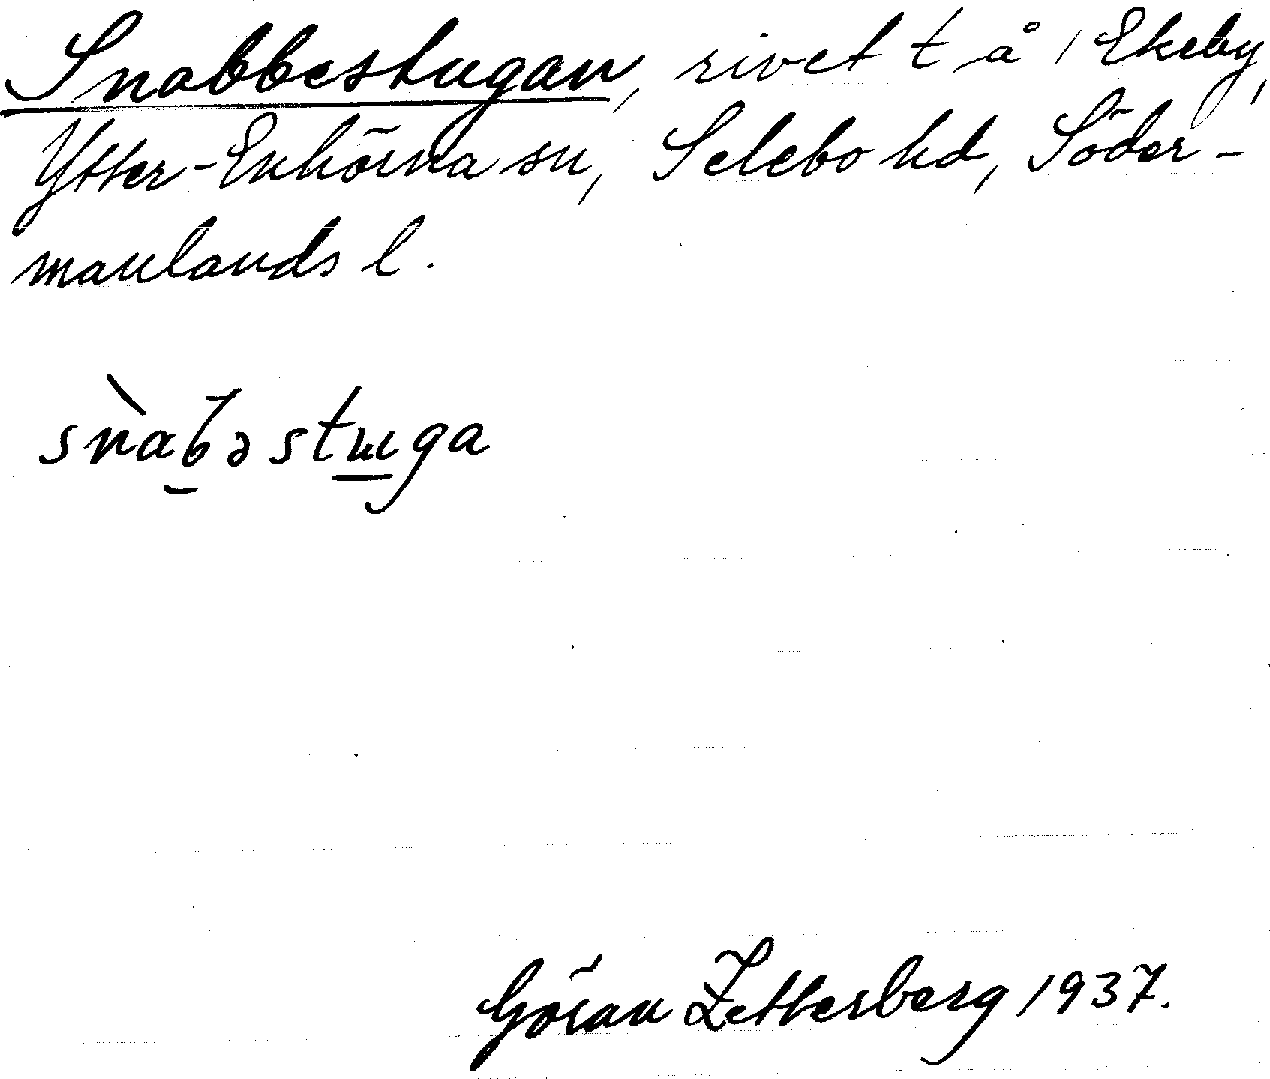 Snabbestugan, rivet t å 1 Ekeby,
Ytter-Enhörna sn, Selebo hd, Söder-
manlands l.
snàbəstɯga
Göran Zetterberg 1937.